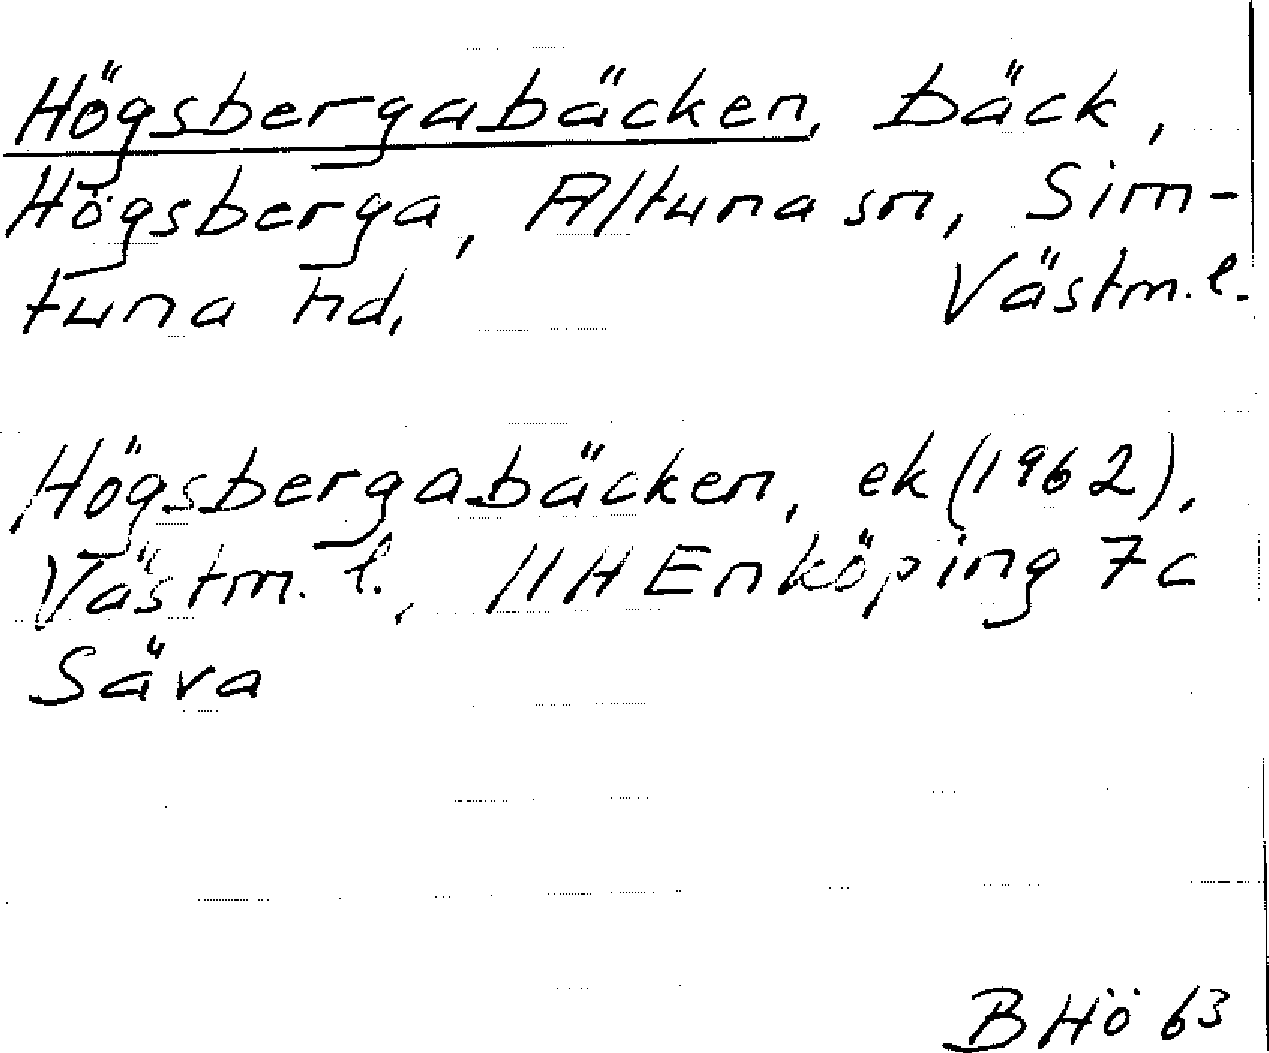 Högsbergabäcken, bäck,
Högsberga, Altuna sn, Sim-
tuna hd, Västm. l.
Högsbergabäcken, ek (1962),
Västm. l., 11H Enköping 7c
Säva
BHö 63